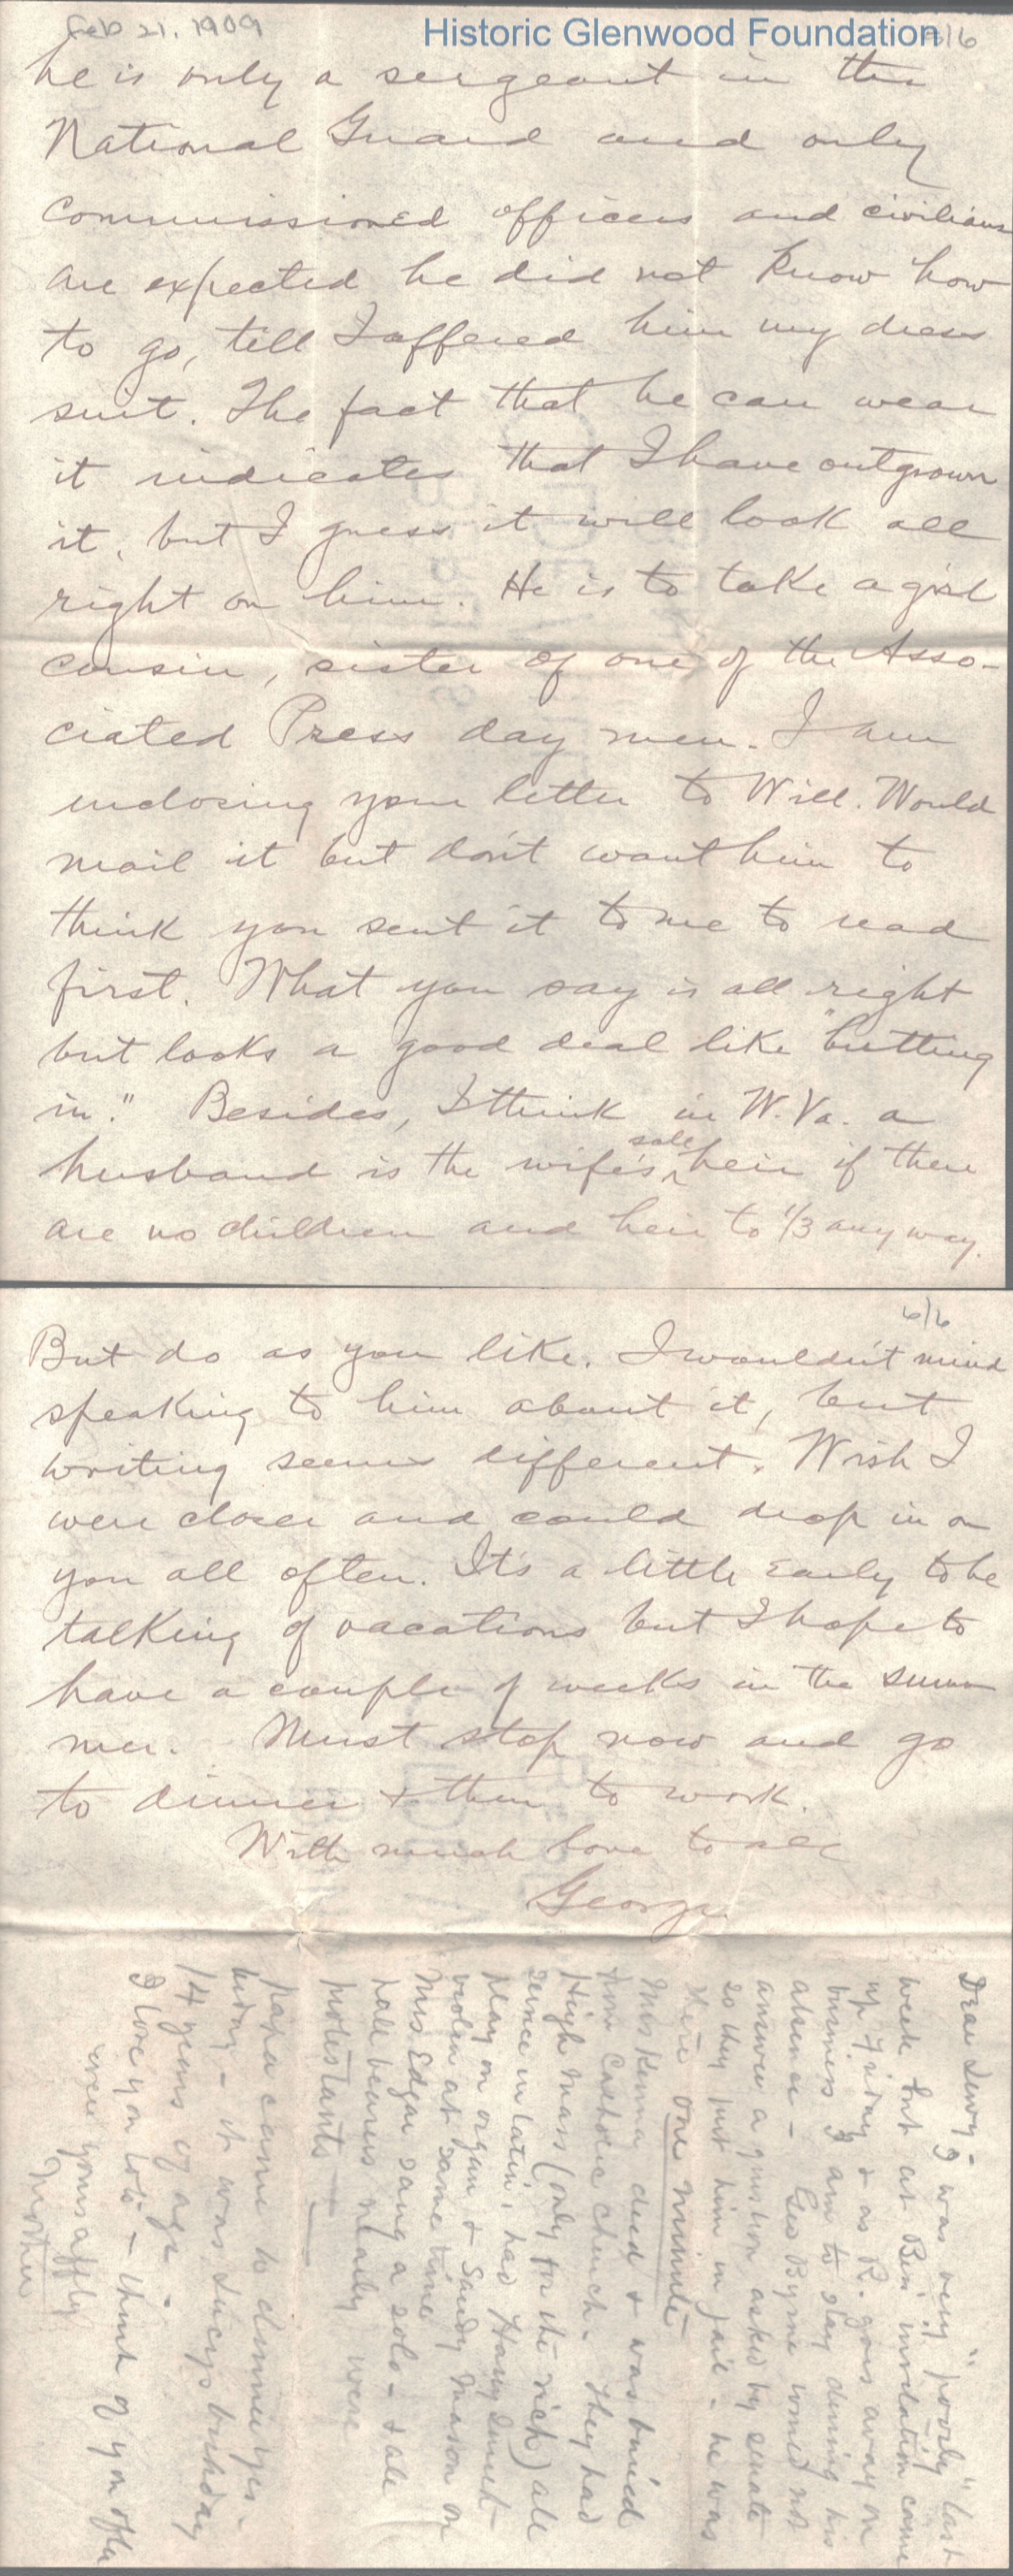 Feb 21, 1909
Historic Glenwood Foundation
he is only a sergeant in the
National Guard and only
commissioned officers and civilians
are expected he did not know how
to go, till I offered him my dress
suit. The fact that he can wear
it indicates that I have outgrown
it, but I guess it will look all
right on him. He is to take a girl
cousin, sister of one of the Asso-
ciated Press day men. I am
inclosing your letter to Will. Would
mail it but don't want him to
think you sent it to me to read
first. What you say is all right
but looks a good deal like "butting
in." Besides, I think in W. Va. a
husband is the wife's sole heir if there
are no children and heir to 1/3 any way.
6/6
But do as you like. I wouldn't mind
speaking to him about it, but
writing seems different. Wish I
were closer and could drop in on
you all often. It's a little early to be
talking of vacations but I hope to
have a couple of weeks in the sum
mer. Must stop now and go
to dinner & then to work.
With much love to all
George
Dear - I was very "poorly" last
week but at Ben's invitation came
up Friday & as R. goes away on
business I am to stay during his
absence - Geo Byrne would not
answer a question asked by senate
so they put him in jail - he was
there one minute
Miss Kenna died & was buried
from Catholic church. They had
High Mass (only for the rich) all
service in latin, had Harry
play on organ & Sandy Mason on
violin at same time
Mrs Edgar sang a solo - & all
pall bearers nearly were
protestants -
papa came to dinner yes-
terday - it was Lucy's birthday
14 years of age -
I love you lots - think of you often
ever yours affly
Mother